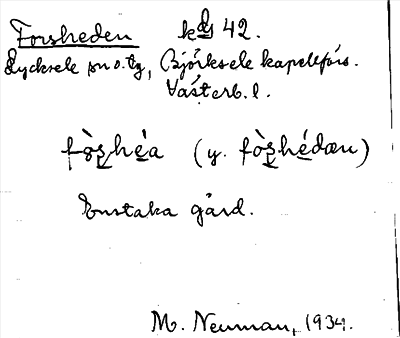 Forsheden kds 42.
Lycksele sn o. tg, Björksele kapellförs.
Västerb. l.
fòs̱hé̱a (y. fòs̱hé̱dæn)
Enstaka gård.
M. Neuman, 1934.